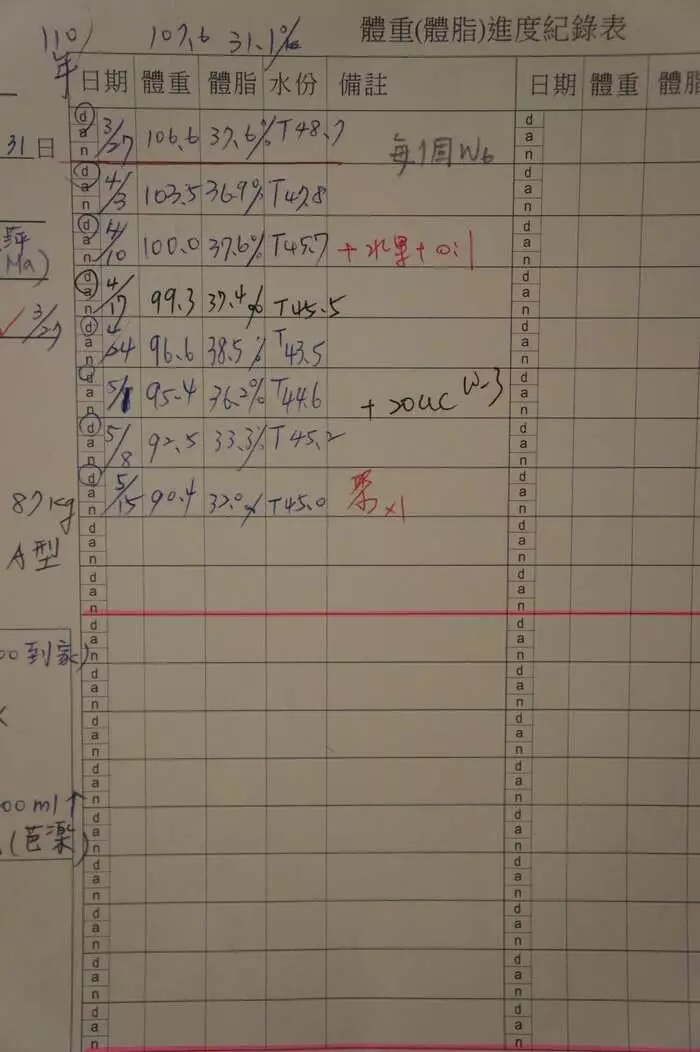 110年 107.6 31.1% 體重(體脂)進度紀錄表
日期 體重 體脂 水份 備註 日期 體重 體脂
d a n 3/27 106.6 37.6% T48.7 每1週W6
31日
d a n 4/3 103.5 36.9% T47.8
d a n 4/10 100.0 37.6% T45.7 +水果+
Ma)
d a n 4/17 99.3 37.4% T45.5
3/27
d a n 4/24 96.6 38.5% T43.5
d a n 5/1 95.4 36.2% T44.6 +20uc W-3
d a n 5/8 92.5 33.3% T45.2
d a n 5/15 90.4 T45.0 x1
87kg
A型
00到家)
00ml↑
(芭樂)